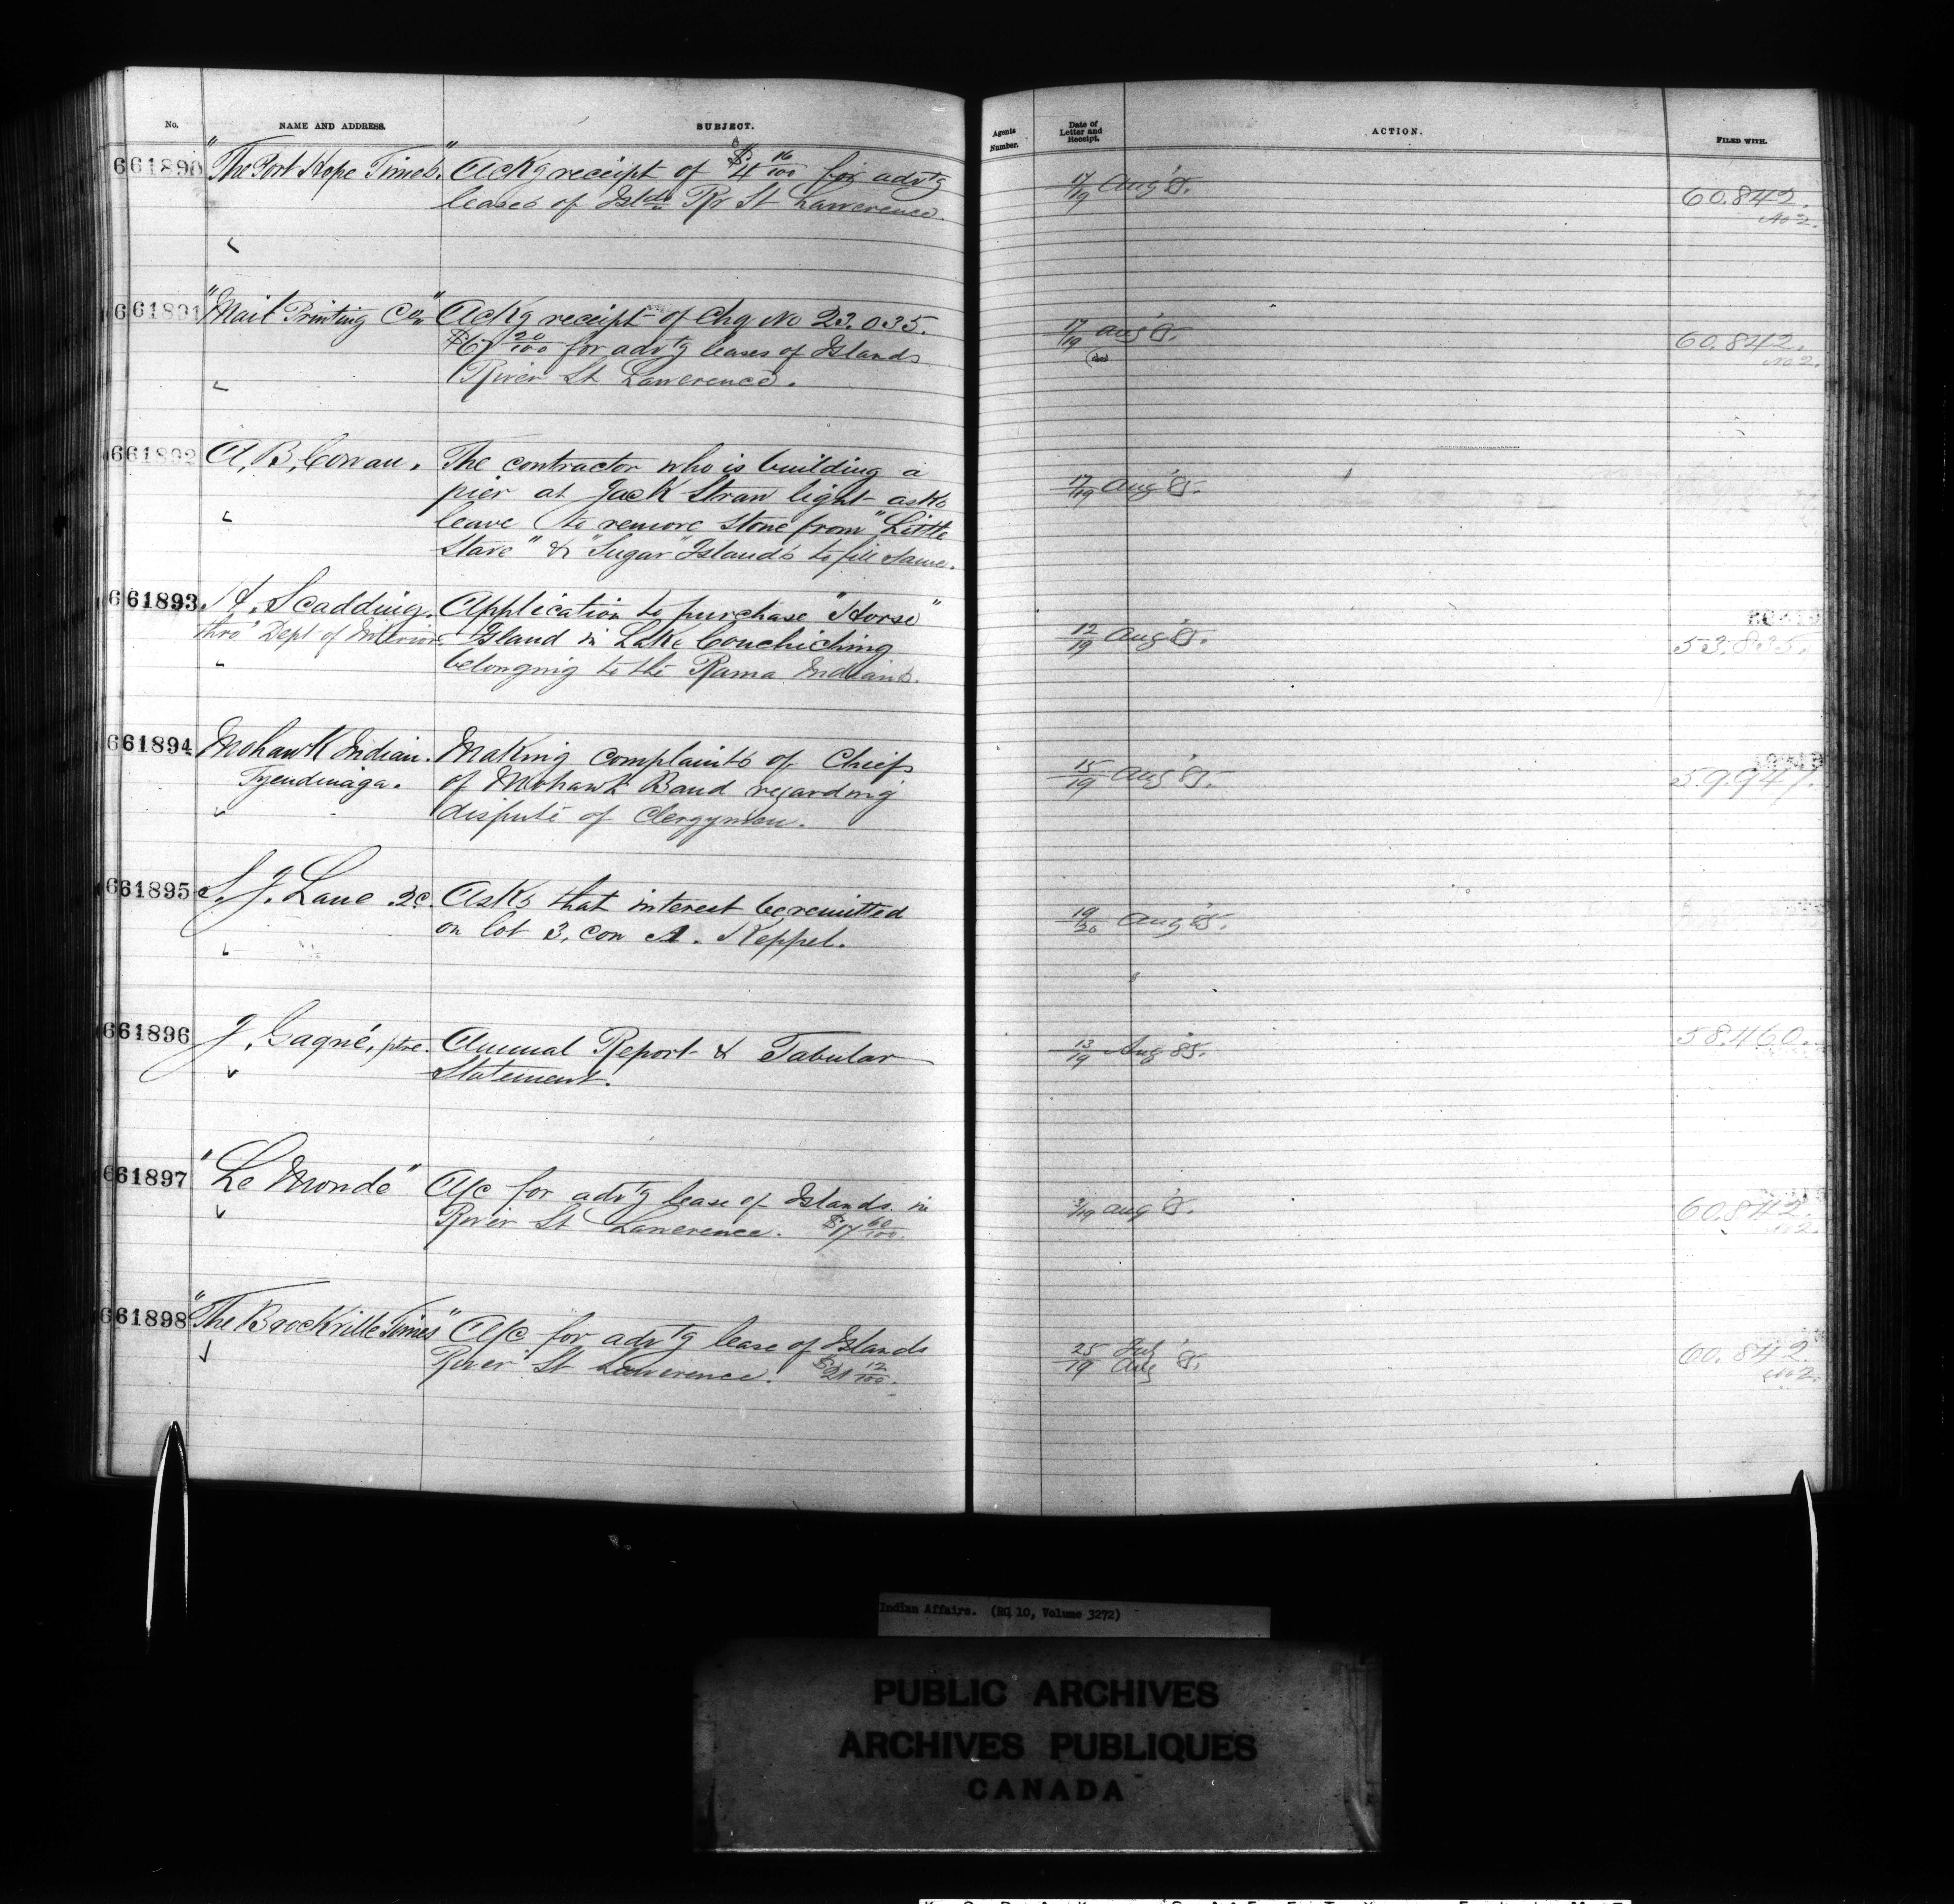 No. NAME AND ADDRESS. SUBJECT. Agents Number. Date of Letter and Receipt. ACTION. FILED WITH.
61890 "The Port Hope Times." Ackg receipt of $4 16/100 for advtg 17/19 Aug '85. 60.842.
leases of Islds Rr St Lawerence No 2.
61891 "Mail Printing Co" Ackg receipt of Chq No 23.035. 17/19 Aug '85. 60.842.
$67 20/100 for advtg leases of Islands No 2.
River St Lawerence.
61892 A. B. Cowan. The contractor who is building a 17/19 Aug '85.
pier at Jack Straw light asks
leave to remove stone from "Little
Stave" & "Sugar" Islands to fill same.
61893 H. Scadding. Application to purchase "Horse" 12/19 Aug '85. 53.835.
thro' Dept of Interior Island in Lake Couchiching
belonging to the Rama Indians.
61894 Mohawk Indian. Making complaints of Chiefs 15/19 Aug '85. 59.947.
Tyendinaga. of Mohawk Band regarding
dispute of Clergymen.
61895 S. J. Lane Asks that interest be remitted 19/20 Aug '85.
on lot 3, con A. Keppel.
61896 J. Gagné, ptre. Annual Report & Tabular 13/19 Aug '85. 58.460.
Statement.
61897 "Le Monde" A/c for advtg lease of Islands in /19 Aug '85. 60.842.
River St Lawerence. $17 60/100 No 2.
61898 "The Brockville Times" A/c for advtg lease of Islands 25 July 60.842.
River St Lawerence. $21 12/100. 19 Aug '85. No 2.
Indian Affairs. (RG 10, Volume 3272)
PUBLIC ARCHIVES
ARCHIVES PUBLIQUES
CANADA